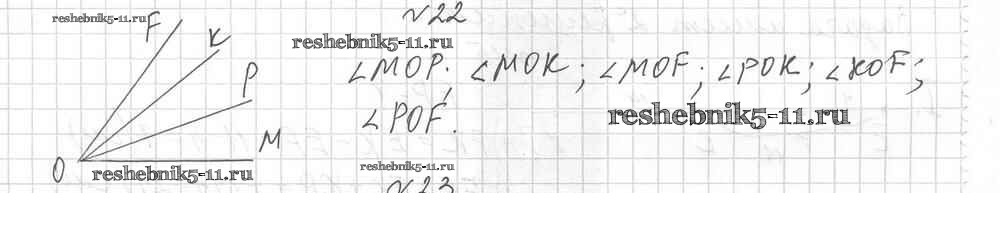 reshebnik5-11.ru
√22
F
K
reshebnik5-11.ru
∠MOP; ∠MOK; ∠MOF; ∠POK; ∠KOF;
P
∠POF.
reshebnik5-11.ru
M
O
reshebnik5-11.ru
reshebnik5-11.ru
√23